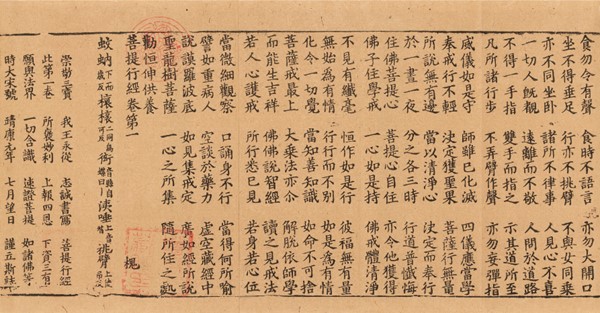 食勿令有聲 食時不語言 亦勿大開口
坐不得垂足 行亦不挑臂 不與女同乘
亦不同坐臥 諸所不律事 人見心不喜
一切人既觀 遠離而不敬 人間於道路
不得一手指 雙手而指之 示其道所至
凡所諸行步 不弄臂作聲 亦勿妄彈指
威儀如是守 師雖已化滅 四儀應當學
奉戒行不輕 決定獲聖果 菩薩行無量
所說無有邊 當以清淨心 決定而奉行
於一晝一夜 分之各三時 行道普懺悔
住佛菩提心 菩提心自住 亦令他獲得
佛子住學戒 一心如是持 佛戒體清淨
不見有纖毫 恒作如是行 彼福無有量
無始為有情 行行而不別 如是為有情
化令一切覺 當知善知識 如命不可捨
菩薩戒最上 大乘法亦令 解脫依師學
而能生吉祥 佛佛說智經 讀之見戒法
若人心護戒 所行悉已見 若身若心位
當微細觀察 口誦身不行 當得何所喻
譬如重病人 空談於藥力 虛空藏經中
說謨羅波底 如見集戒定 廣如經所說
聖龍樹菩薩 一心之所集 隨所住之處
勸恒伸供養
菩提行經卷第一 槐
蚊蚋 挑臂
三寶 我王永從 志誠書寫 菩提行經
此第一卷 所褒妙利 上報四恩 下資三有
願與法界 一切含識 速證菩提 如諸佛等
時大宋號 靖康元年 七月望日 謹立斯誌